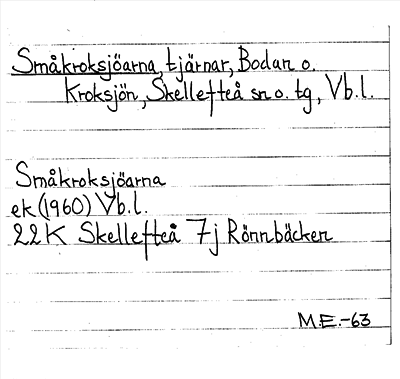 Småkroksjöarna, tjärnar, Bodan o.
Kroksjön, Skellefteå sn o. tg, Vb.l.
Småkroksjöarna
ek (1960) Vb.l.
22K Skellefteå 7j Rönnbäcken
M.E.-63